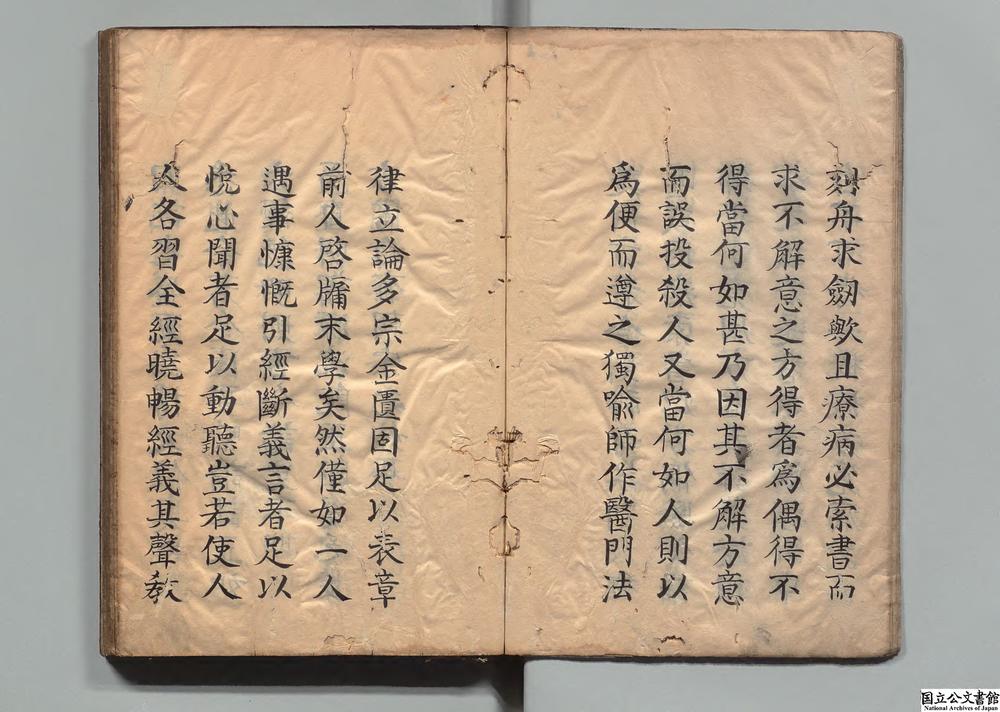 刻舟求劒歟且療病必索書而
求不解意之方得者爲偶得不
得當何如甚乃因其不解方意
而誤投殺人又當何如人則以
爲便而遵之獨喻師作醫門法
律立論多宗金匱固足以表章
前人啓牖末學矣然僅如一人
遇事慷慨引經斷義言者足以
悅心聞者足以動聽豈若使人
人各習全經曉暢經義其聲教
国立公文書館
National Archives of Japan